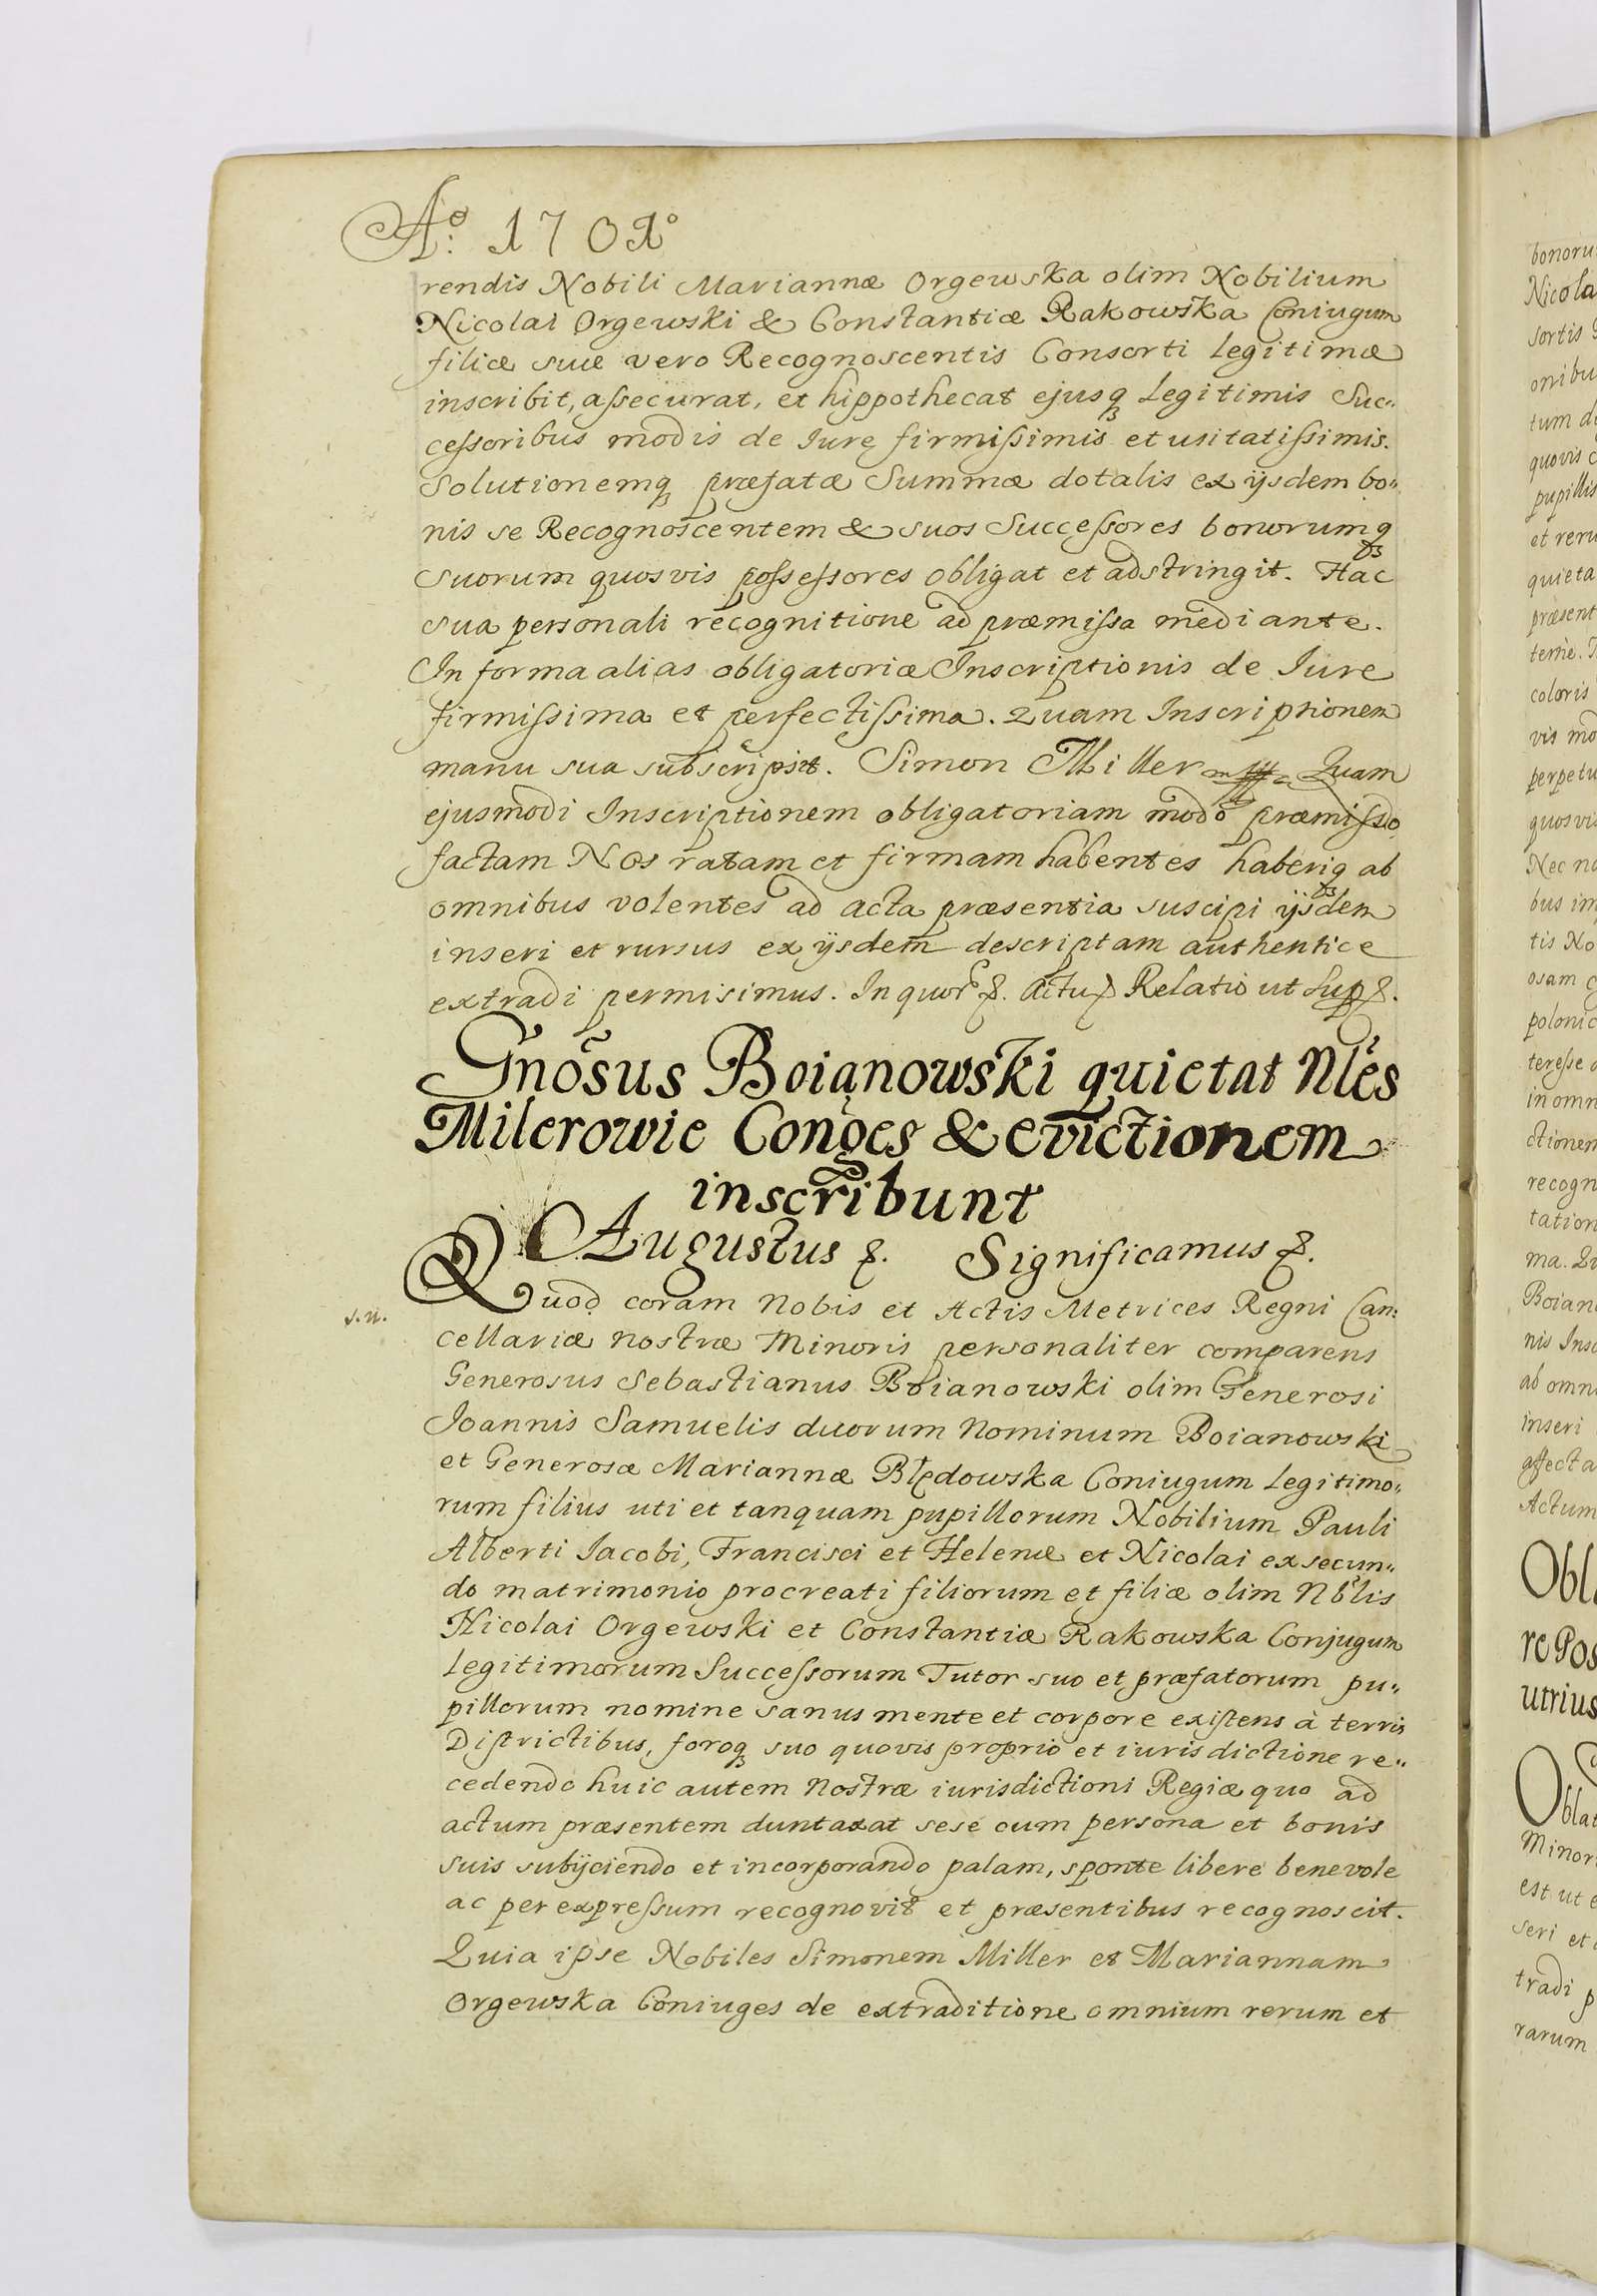 Aº. 1701º
rendis Nobili Mariannæ Orgewska olim Nobilium
Nicolai Orgewski & Constantiæ Rakowska Coniugum
filiæ suæ vero Recognoscentis Consorti legitimæ
inscribit, assecurat, et hippothecat ejusq₃ Legitimis Suc„
cessoribus modis de Iure firmissimis et usitatissimis.
Solutionemq₃ præfatæ Summæ dotalis ex ijsdem bo„
nis se Recognoscentem & suos Successores bonorumq₃
Suorum quosvis possessores obligat et adstringit. Hac
sua personali recognitione ad præmissa mediante.
In forma alias obligatoriæ Inscriptionis de Iure
firmissima et perfectissima. Quam Inscriptionem
manu sua subscripsit. Simon Miller mpp Quam
ejusmodi Inscriptionem obligatoriam modo præmisso
factam Nos ratam et firmam habentes haberiq₃ ab
omnibus volentes ad acta præsentia suscipi ijsdem
inseri et rursus ex ijsdem descriptam authentice
extradi permisimus. In quor &. Actu Relatio ut Sup &.
Gnosus Boianowski quietat Nles
Milerowie Conges & evictionem
inscribunt
Augustus &. Significamus &.
Quod coram Nobis et Actis Metrices Regni Can:
s.n.
cellariæ nostræ Minoris personaliter comparens
Generosus Sebastianus Boianowski olim Generosi
Joannis Samuelis duorum Nominum Boianowski
et Generosæ Mariannæ Błędowska Coniugum Legitimo„
rum filius uti et tanquam pupillorum Nobilium Pauli
Alberti Jacobi, Francisci et Helenæ et Nicolai ex secun„
do matrimonio procreati filiorum et filiæ olim Nblis
Nicolai Orgewski et Constantiæ Rakowska Conjugum
legitimorum Successorum Tutor suo et præfatorum pu„
pillorum nomine sanus mente et corpore existens à terris
Districtibus, foroq₃ suo quovis proprio et iurisdictione re„
cedendo huic autem Nostræ iurisdictioni Regiæ quo ad
actum præsentem duntaxat sese cum persona et bonis
suis subijciendo et incorporando palam, sponte libere benevole
ac per expressum recognovit et præsentibus recognoscit.
Quia ipse Nobiles Simonem Miller et Mariannam
Orgewska Coniuges de extraditione omnium rerum et
bonoru
Nicola
sortis
onibu
tum d
quovis
pupillis
et reru
quieta
præsent
terne.
coloris
vis mo
perpetu
quosvis
Nec no
bus im
tis No
osam
polonic
teresse
in omn
ctionem
recogn
tation
ma. Qu
Boian
nis Insc
ab omn
inseri
affecta
Actum
Obl
re Pos
utrius
Oblat
Minori
est ut e
seri et
tradi p
rarum